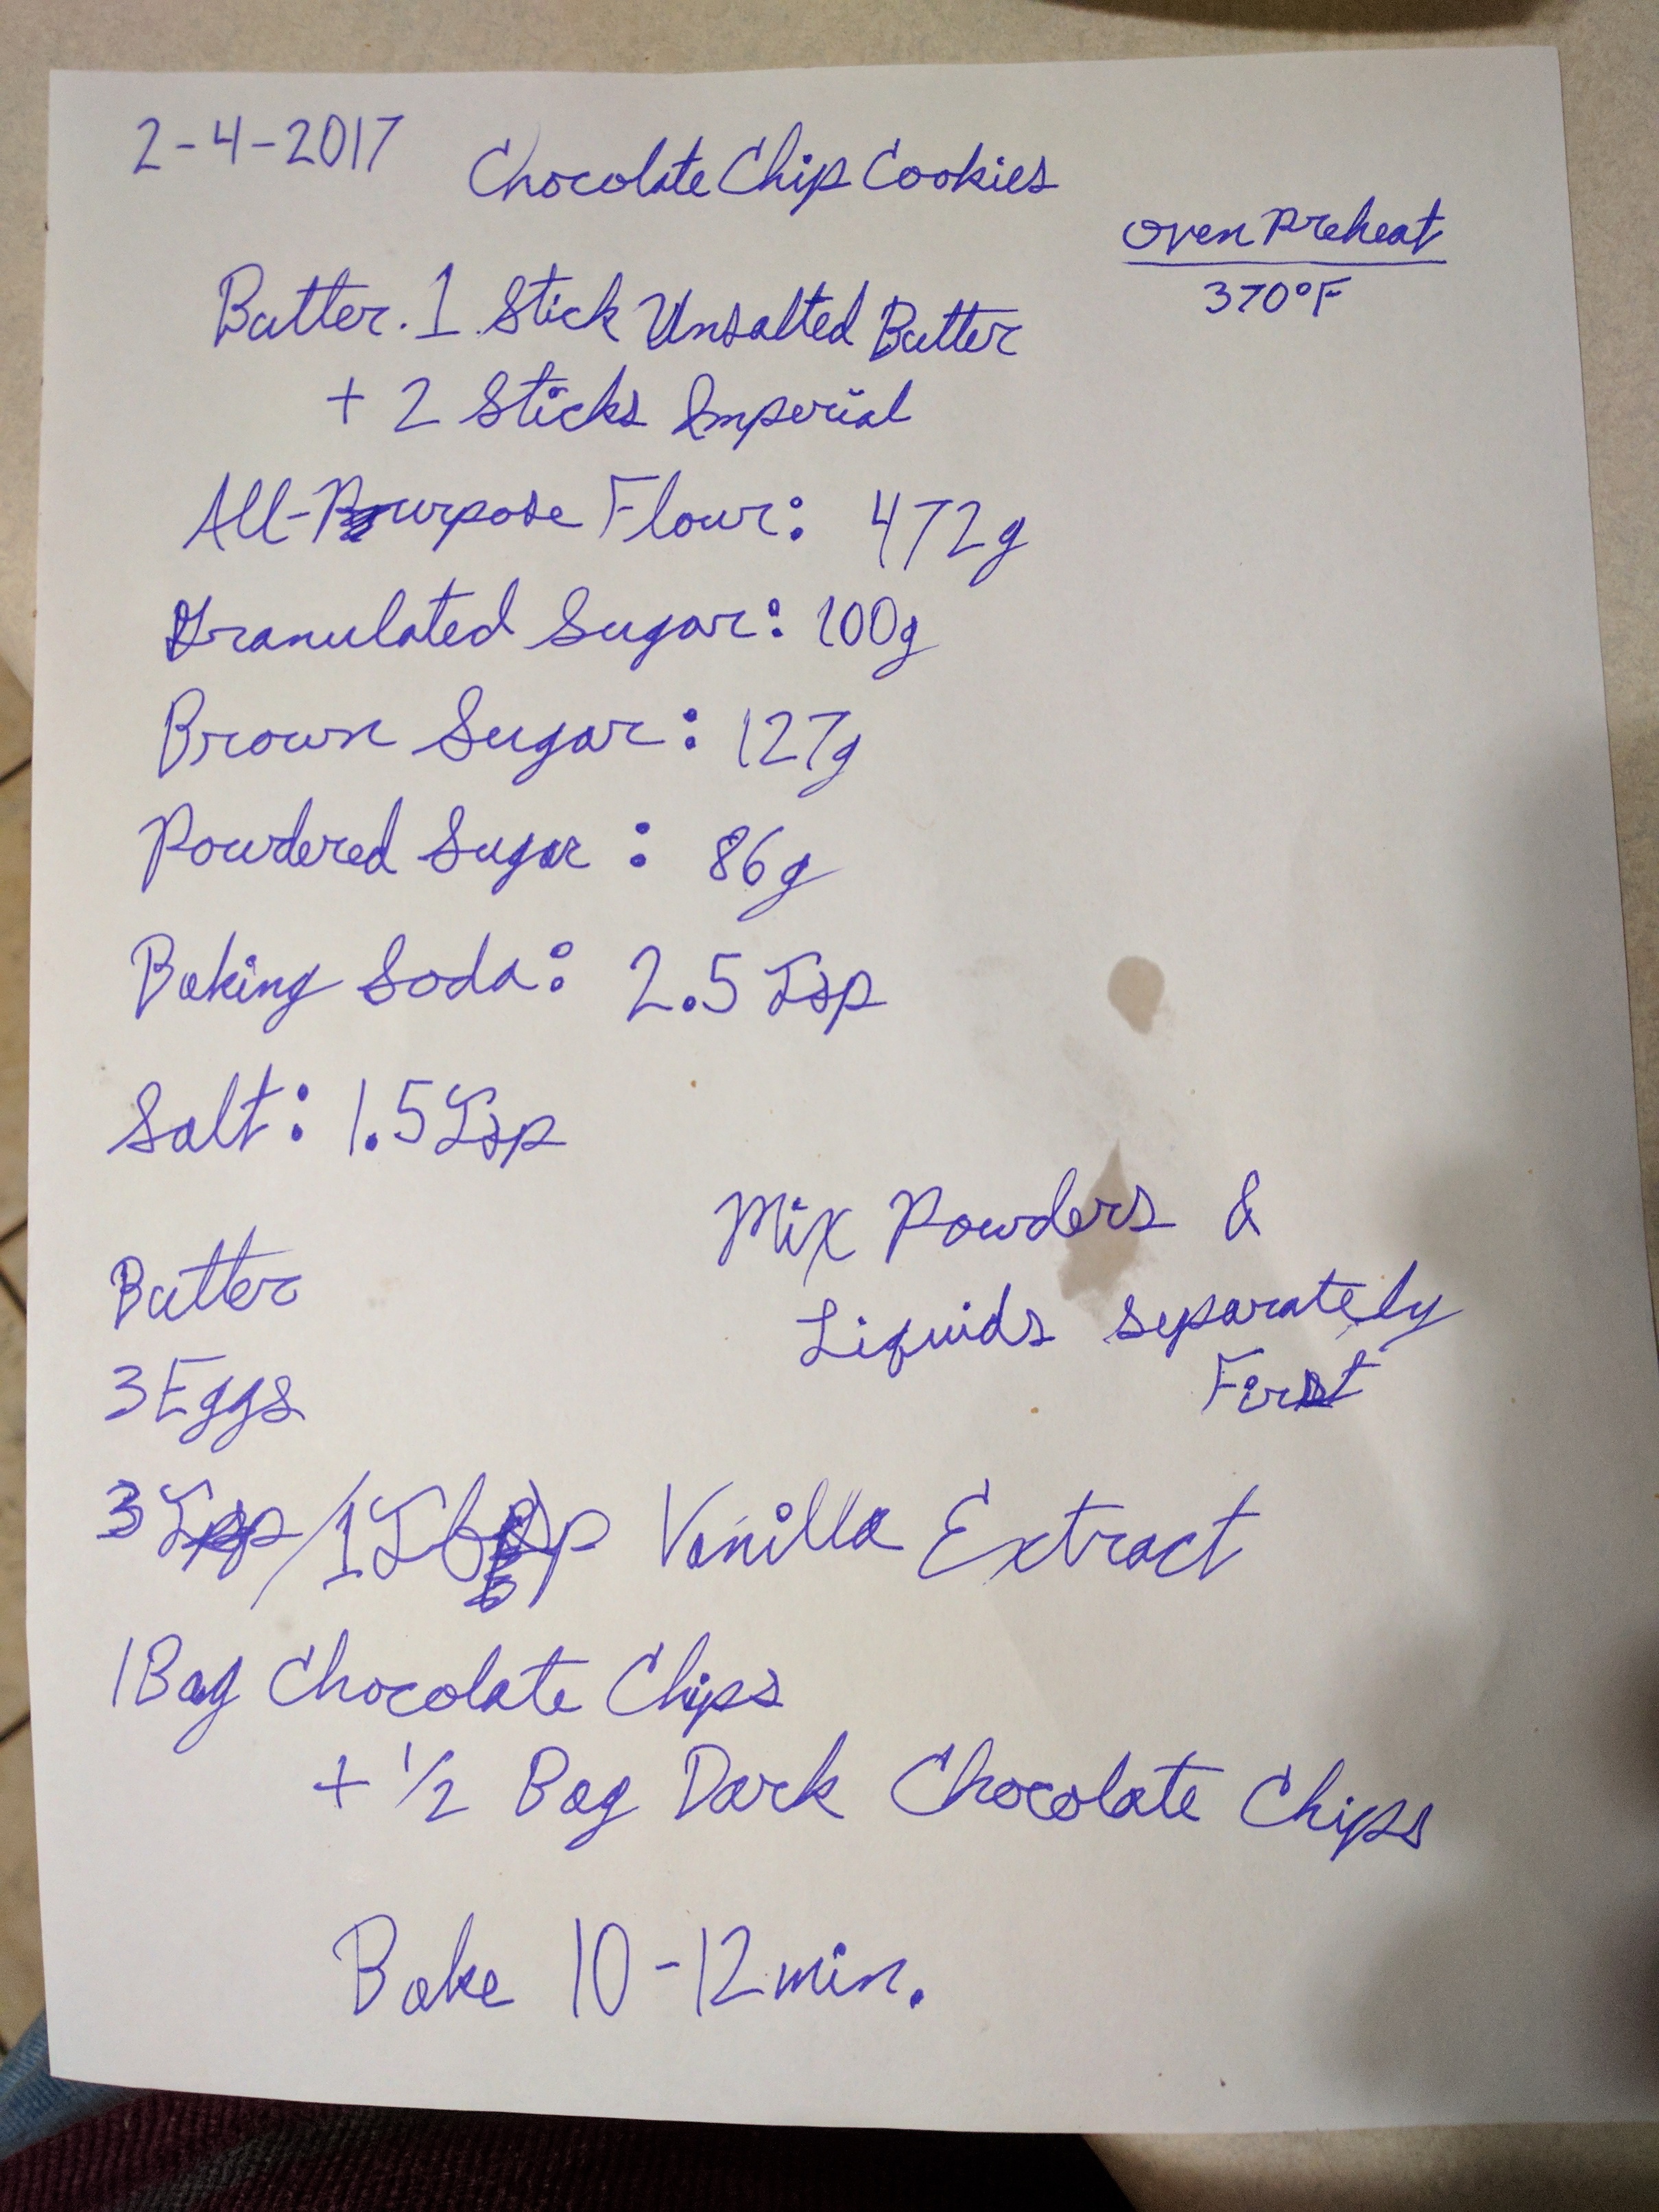 2-4-2017
Chocolate Chip Cookies
Oven Preheat
370°F
Butter. 1 Stick Unsalted Butter
+ 2 Sticks Imperial
All-Purpose Flour: 472g
Granulated Sugar: 100g
Brown Sugar: 127g
Powdered Sugar: 86g
Baking Soda: 2.5 Tsp
Salt: 1.5 Tsp
Mix Powders &
Liquids separately
First
Butter
3 Eggs
3 Tsp/1 Tbsp Vanilla Extract
1 Bag Chocolate Chips
+ 1/2 Bag Dark Chocolate Chips
Bake 10-12 min.